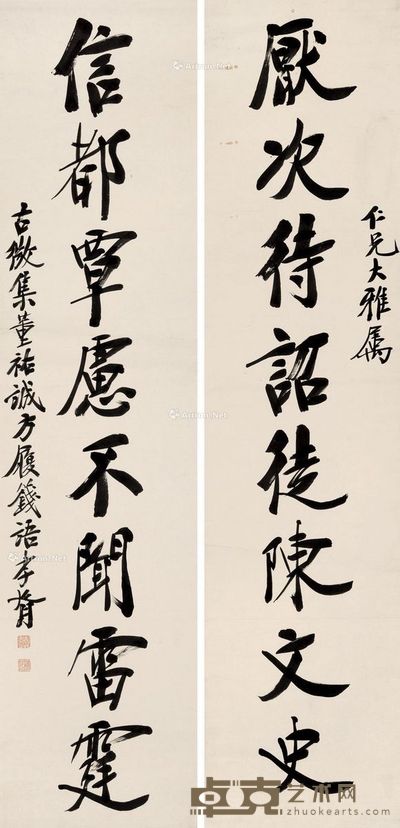 仁兄大雅屬
厭次待詔徒陳文史
信都覃慮不聞雷霆
古微集董祐誠方履籛語孝臧
Artron.Net
Artron.Net
Artron.Net
卓克艺术网
zhuokearts.com